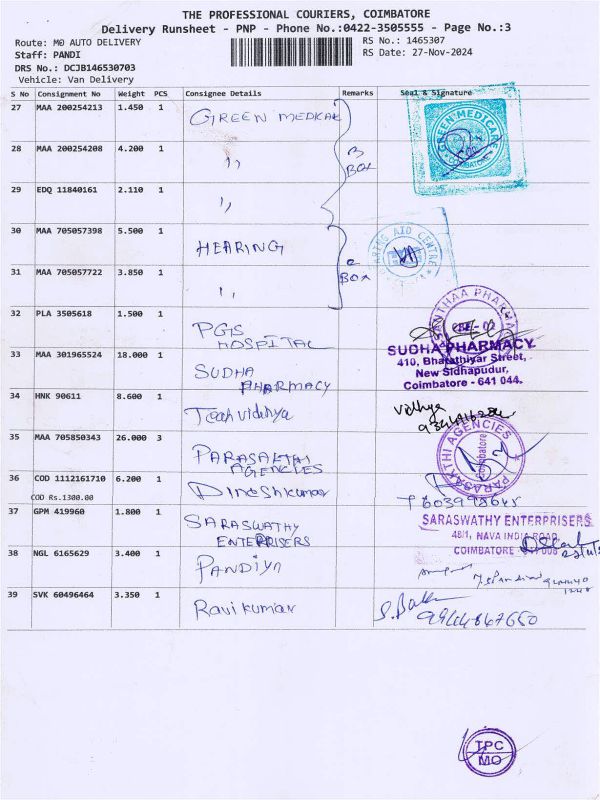 THE PROFESSIONAL COURIERS, COIMBATORE
Delivery Runsheet - PNP - Phone No.:0422-3505555 - Page No.:3
Route: MO AUTO DELIVERY
RS No.: 1465307
Staff: PANDI
RS Date: 27-Nov-2024
DRS No.: DCJB146530703
Vehicle: Van Delivery
S No Consignment No Weight PCS Consignee Details Remarks Seal & Signature
27 MAA 200254213 1.450 1 GREEN MEDICAL
GREEN MEDICARE
COIMBATORE
28 MAA 200254208 4.200 1 ,, 3 BOX
29 EDQ 11840161 2.110 1 ,,
30 MAA 705057398 5.500 1 HEARING
HEARING AID CENTRE
31 MAA 705057722 3.850 1 ,, 2 BOX
32 PLA 3505618 1.500 1 PGS HOSPITAL
SANTHAA PHARMA
33 MAA 301965524 18.000 1 SUDHA PHARMACY
SUDHA PHARMACY
410, Bharathiyar Street,
New Sidhapudur,
Coimbatore - 641 044.
34 HNK 90611 8.600 1 Teah vidhya
Vidhya
35 MAA 705850343 26.000 3 PARASAKTHI AGENCIES
PARASAKTHI AGENCIES
Coimbatore
36 COD 1112161710 6.200 1 Dineshkumar
COD Rs.1300.00
37 GPM 419960 1.800 1 SARASWATHY ENTERPRISERS
SARASWATHY ENTERPRISERS
48/1, NAVA INDIA ROAD,
COIMBATORE
38 NGL 6165629 3.400 1 PANDIYA
39 SVK 60496464 3.350 1 Ravi kumar
9944867650
TPC
MO